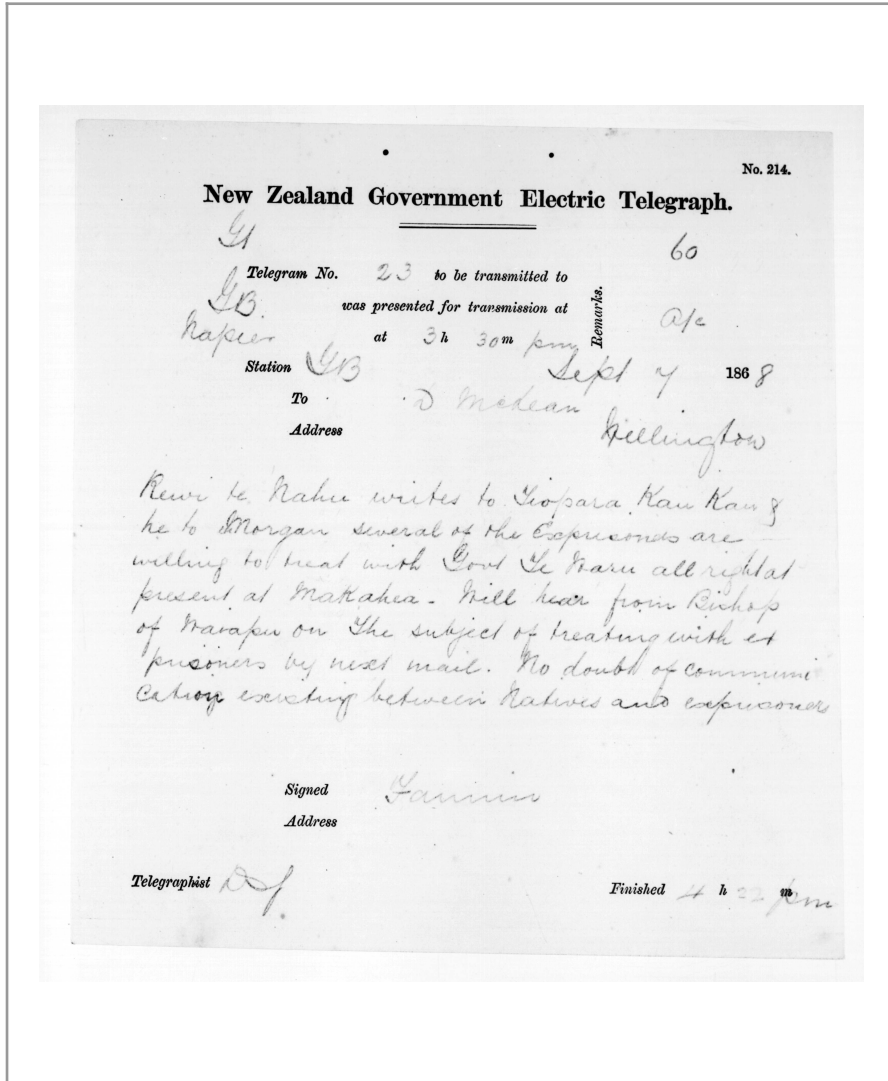 No. 214.
New Zealand Government Electric Telegraph.
Gt 60
Telegram No. 23 to be transmitted to
GB. was presented for transmission at Remarks. a/c
Napier at 3 h 30 m pm
Station GB Sept 7 1868
To D McLean
Address Wellington
Rewi te Nahu writes to Tiopara Kau Kau &
he to Morgan several of the Exprisoners are
willing to treat with Govt Te Waru all right at
present at Makahea - Will hear from Bishop
of Waiapu on The subject of treating with ex
prisoners by next mail. No doubt of communi
cation existing between Natives and exprisoners
Signed Fannin
Address
Telegraphist
Finished 4 h 22 m pm